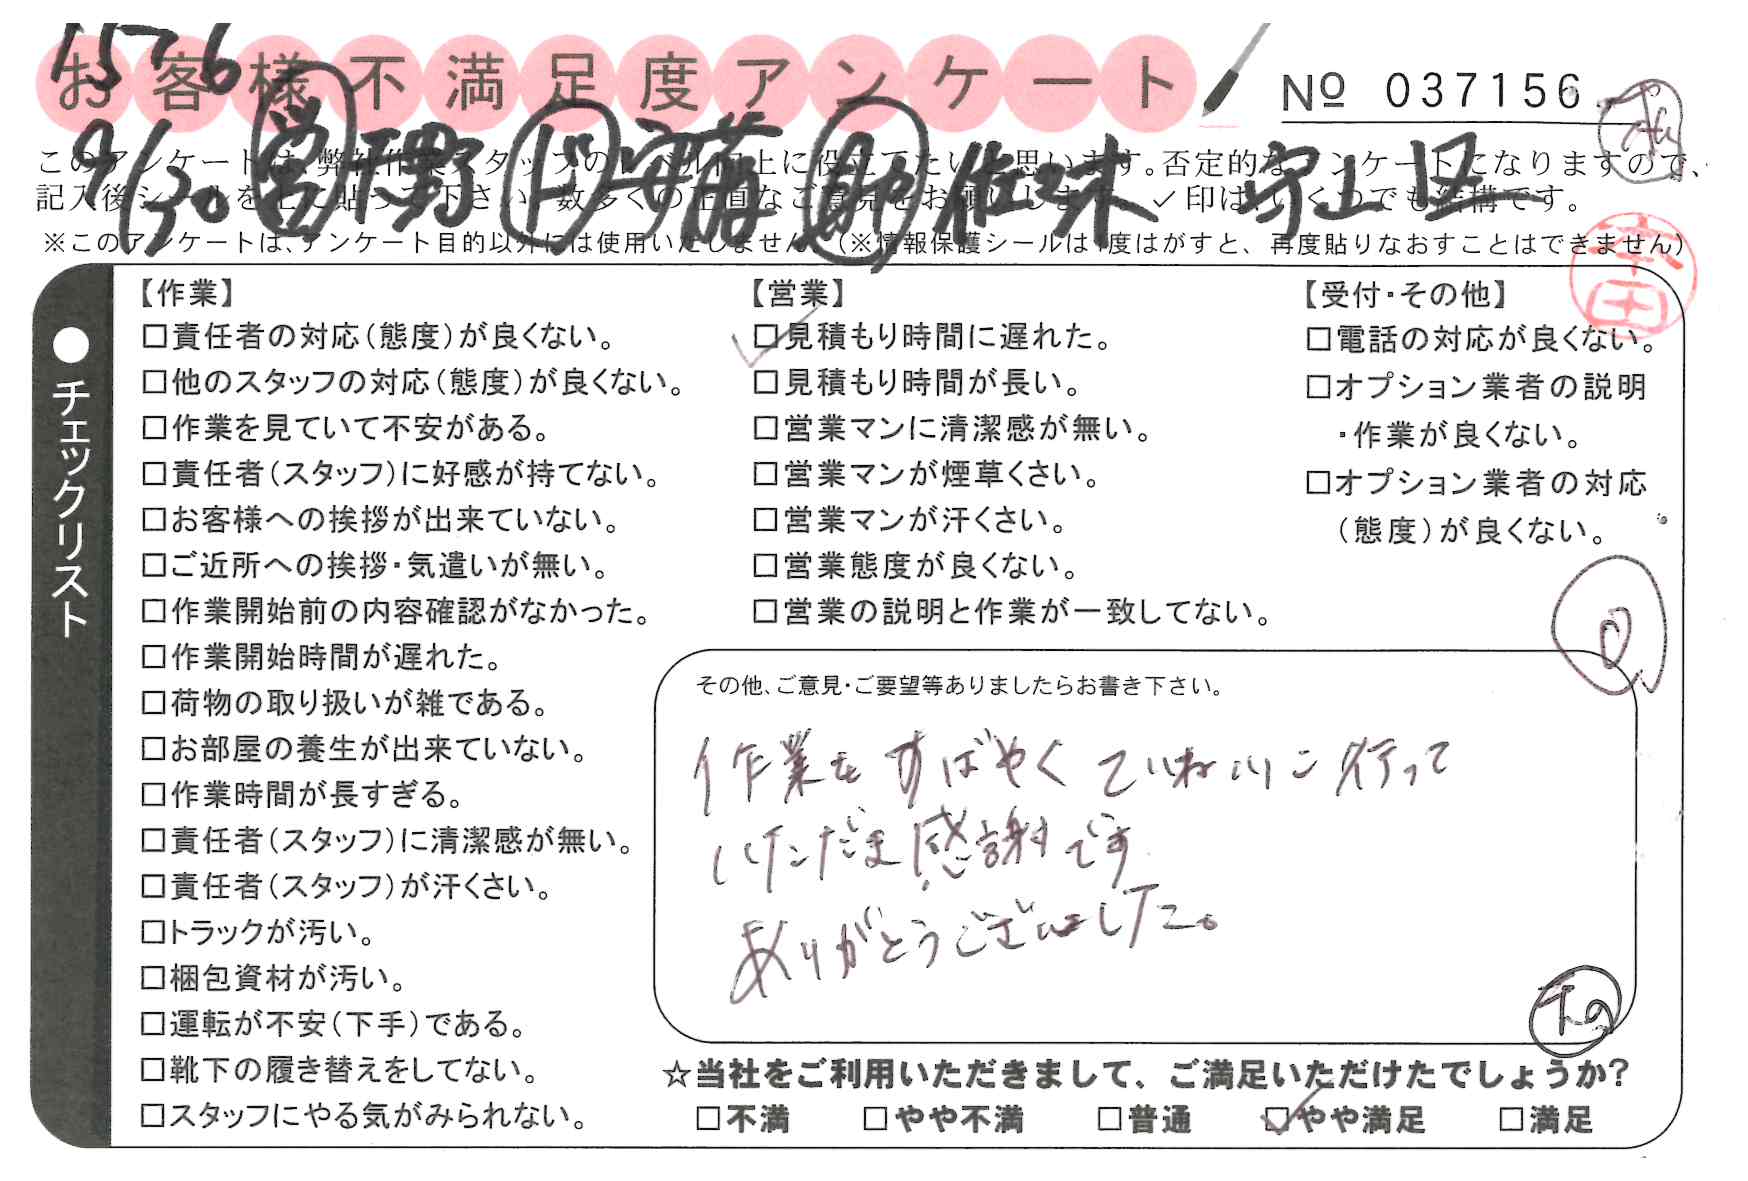 1576
お客様不満足度アンケート
№ 037156
9/30 営 隈野 ド 安藤 助 佐々木 守山区
このアンケートは、弊社作業スタッフのレベル向上に役立てたいと思います。否定的なアンケートになりますので、
記入後シールを上に貼って下さい。数多くの正直なご意見をお願いします。✓印は、いくつでも結構です。
※このアンケートは、アンケート目的以外には使用いたしません。(※情報保護シールは1度はがすと、再度貼りなおすことはできません)
●チェックリスト
【作業】
□責任者の対応(態度)が良くない。
□他のスタッフの対応(態度)が良くない。
□作業を見ていて不安がある。
□責任者(スタッフ)に好感が持てない。
□お客様への挨拶が出来ていない。
□ご近所への挨拶・気遣いが無い。
□作業開始前の内容確認がなかった。
□作業開始時間が遅れた。
□荷物の取り扱いが雑である。
□お部屋の養生が出来ていない。
□作業時間が長すぎる。
□責任者(スタッフ)に清潔感が無い。
□責任者(スタッフ)が汗くさい。
□トラックが汚い。
□梱包資材が汚い。
□運転が不安(下手)である。
□靴下の履き替えをしてない。
□スタッフにやる気がみられない。
【営業】
☑見積もり時間に遅れた。
□見積もり時間が長い。
□営業マンに清潔感が無い。
□営業マンが煙草くさい。
□営業マンが汗くさい。
□営業態度が良くない。
□営業の説明と作業が一致してない。
【受付・その他】
□電話の対応が良くない。
□オプション業者の説明
・作業が良くない。
□オプション業者の対応
(態度)が良くない。
その他、ご意見・ご要望等ありましたらお書き下さい。
作業をすばやくていねいに行って
いただき感謝です
ありがとうございました。
☆当社をご利用いただきまして、ご満足いただけたでしょうか?
□不満 □やや不満 □普通 ☑やや満足 □満足